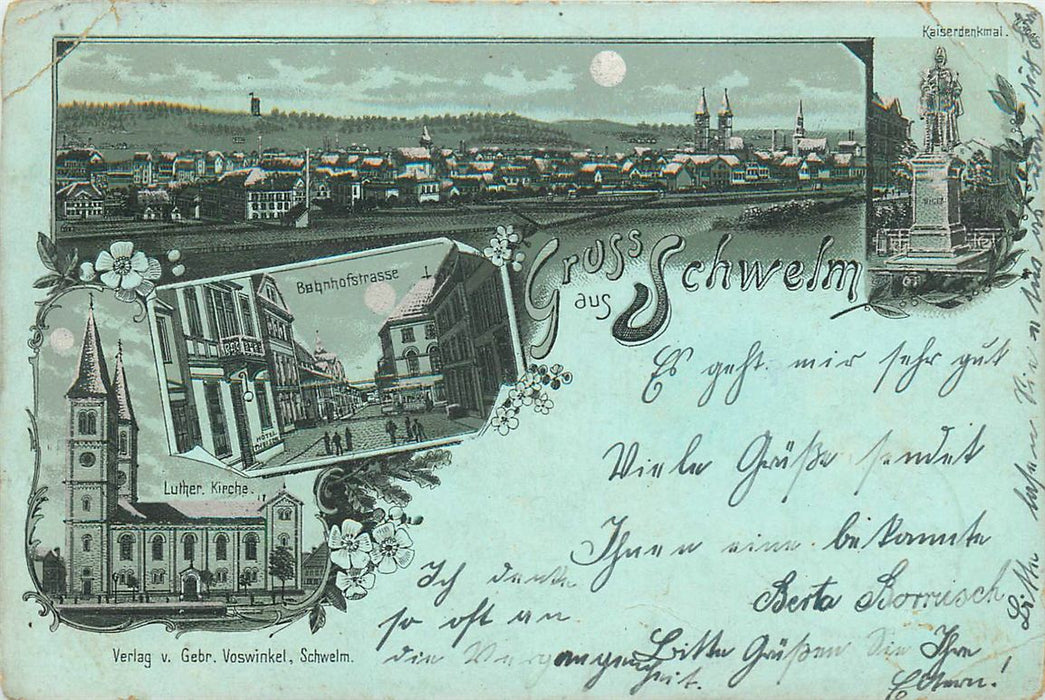 Kaiserdenkmal.
Gruss
aus
Schwelm
Bahnhofstrasse
HOTEL
Luther. Kirche.
Es geht mir sehr gut
Viele Grüße sendet
Ihnen eine bekannte
Berta Borrusch
Ich denke
so oft an
die Vergangenheit.
Bitte Grüßen Sie Ihre
Eltern!
Bitte lassen Sie
Verlag v. Gebr. Voswinkel, Schwelm.